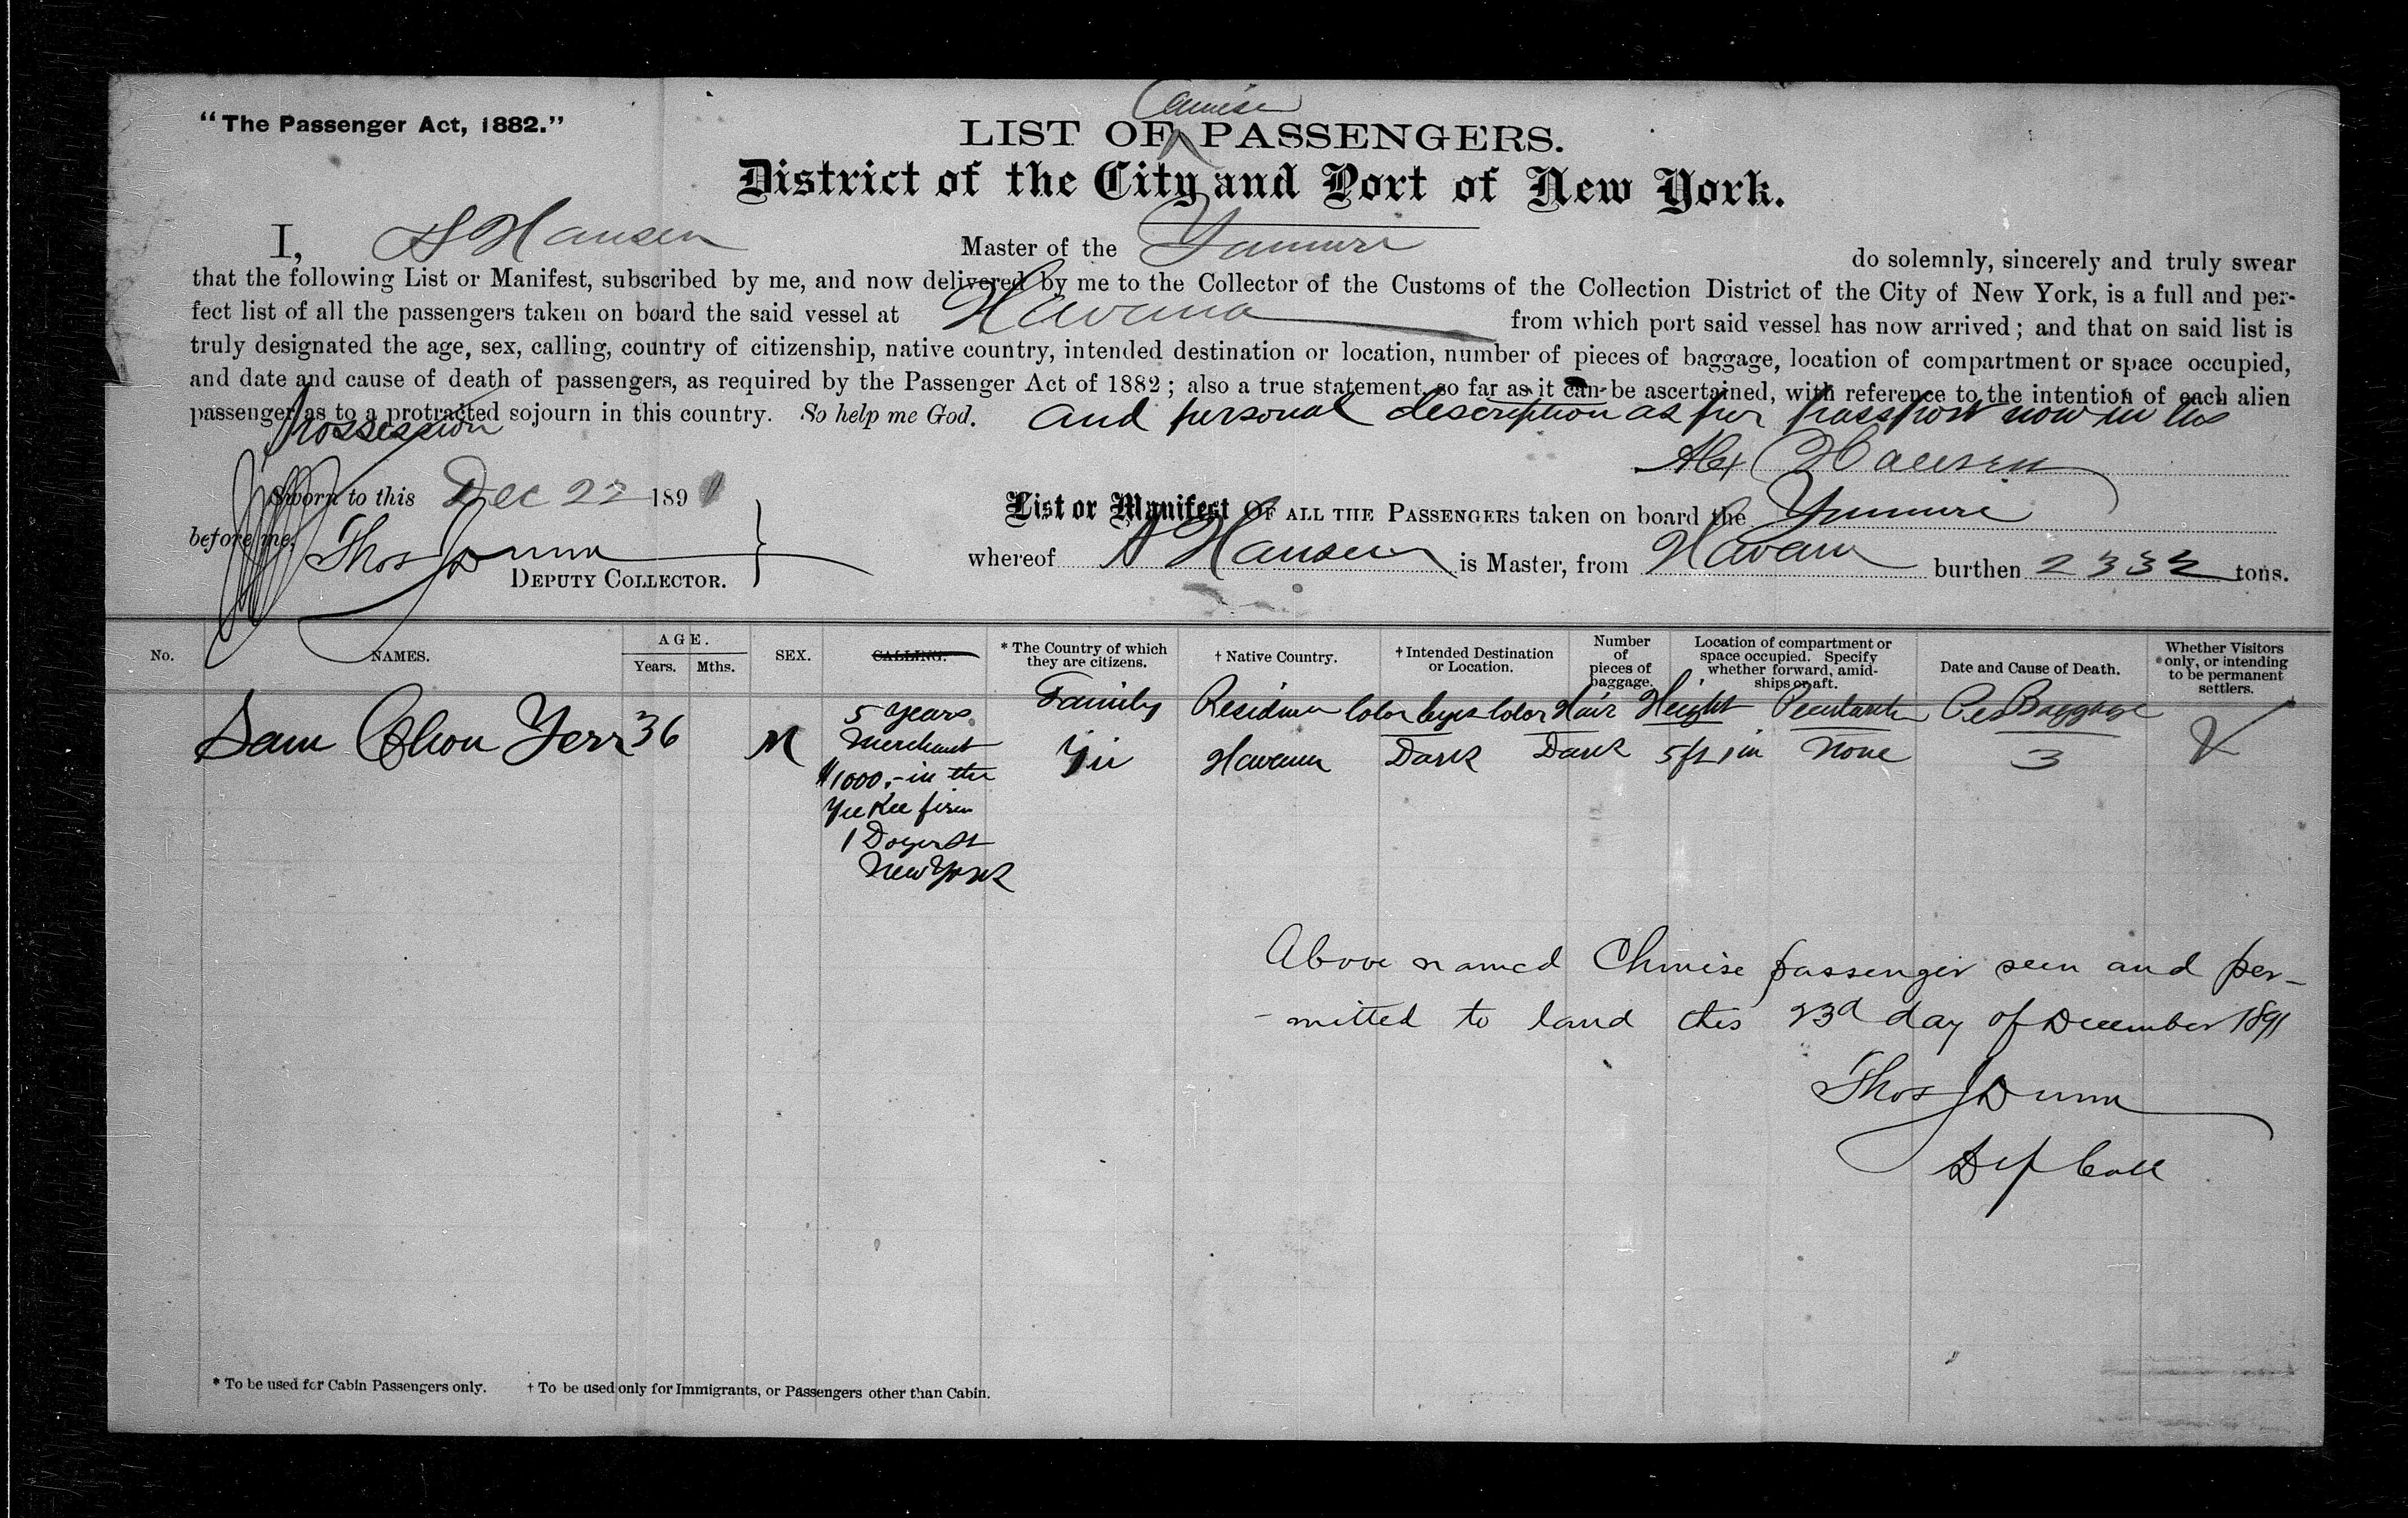 "The Passenger Act, 1882."
Chinese
LIST OF PASSENGERS.
District of the City and Port of New York.
I, A Hansen Master of the Yumuri do solemnly, sincerely and truly swear
that the following List or Manifest, subscribed by me, and now delivered by me to the Collector of the Customs of the Collection District of the City of New York, is a full and per-
fect list of all the passengers taken on board the said vessel at Havana from which port said vessel has now arrived; and that on said list is
truly designated the age, sex, calling, country of citizenship, native country, intended destination or location, number of pieces of baggage, location of compartment or space occupied,
and date and cause of death of passengers, as required by the Passenger Act of 1882; also a true statement, so far as it can be ascertained, with reference to the intention of each alien
passenger as to a protracted sojourn in this country. So help me God. and personal description as per passport now in his
possession
Alex Hansen
Sworn to this Dec 22 1891
before me, Thos J Dunn
DEPUTY COLLECTOR.
List or Manifest OF ALL THE PASSENGERS taken on board the Yumuri
whereof A Hansen is Master, from Havana burthen 2332 tons.
No. NAMES. AGE. Years. Mths. SEX. CALLING. * The Country of which they are citizens. † Native Country. † Intended Destination or Location. Number of pieces of baggage. Location of compartment or space occupied. Specify whether forward, amid-ships or aft. Date and Cause of Death. Whether Visitors only, or intending to be permanent settlers.
Family Residence Color Eyes Color Hair Height Pcs Baggage
Sam Chon Yerr 36 M Havana Dark Dark 5 ft 1 in None 3
5 years
Merchant
$1000,- in the
Yee Kee firm
1 Doyer St
New York
Above named Chinese passenger seen and per-
-mitted to land this 23d day of December 1891
Thos J Dunn
Dep Coll
* To be used for Cabin Passengers only. † To be used only for Immigrants, or Passengers other than Cabin.